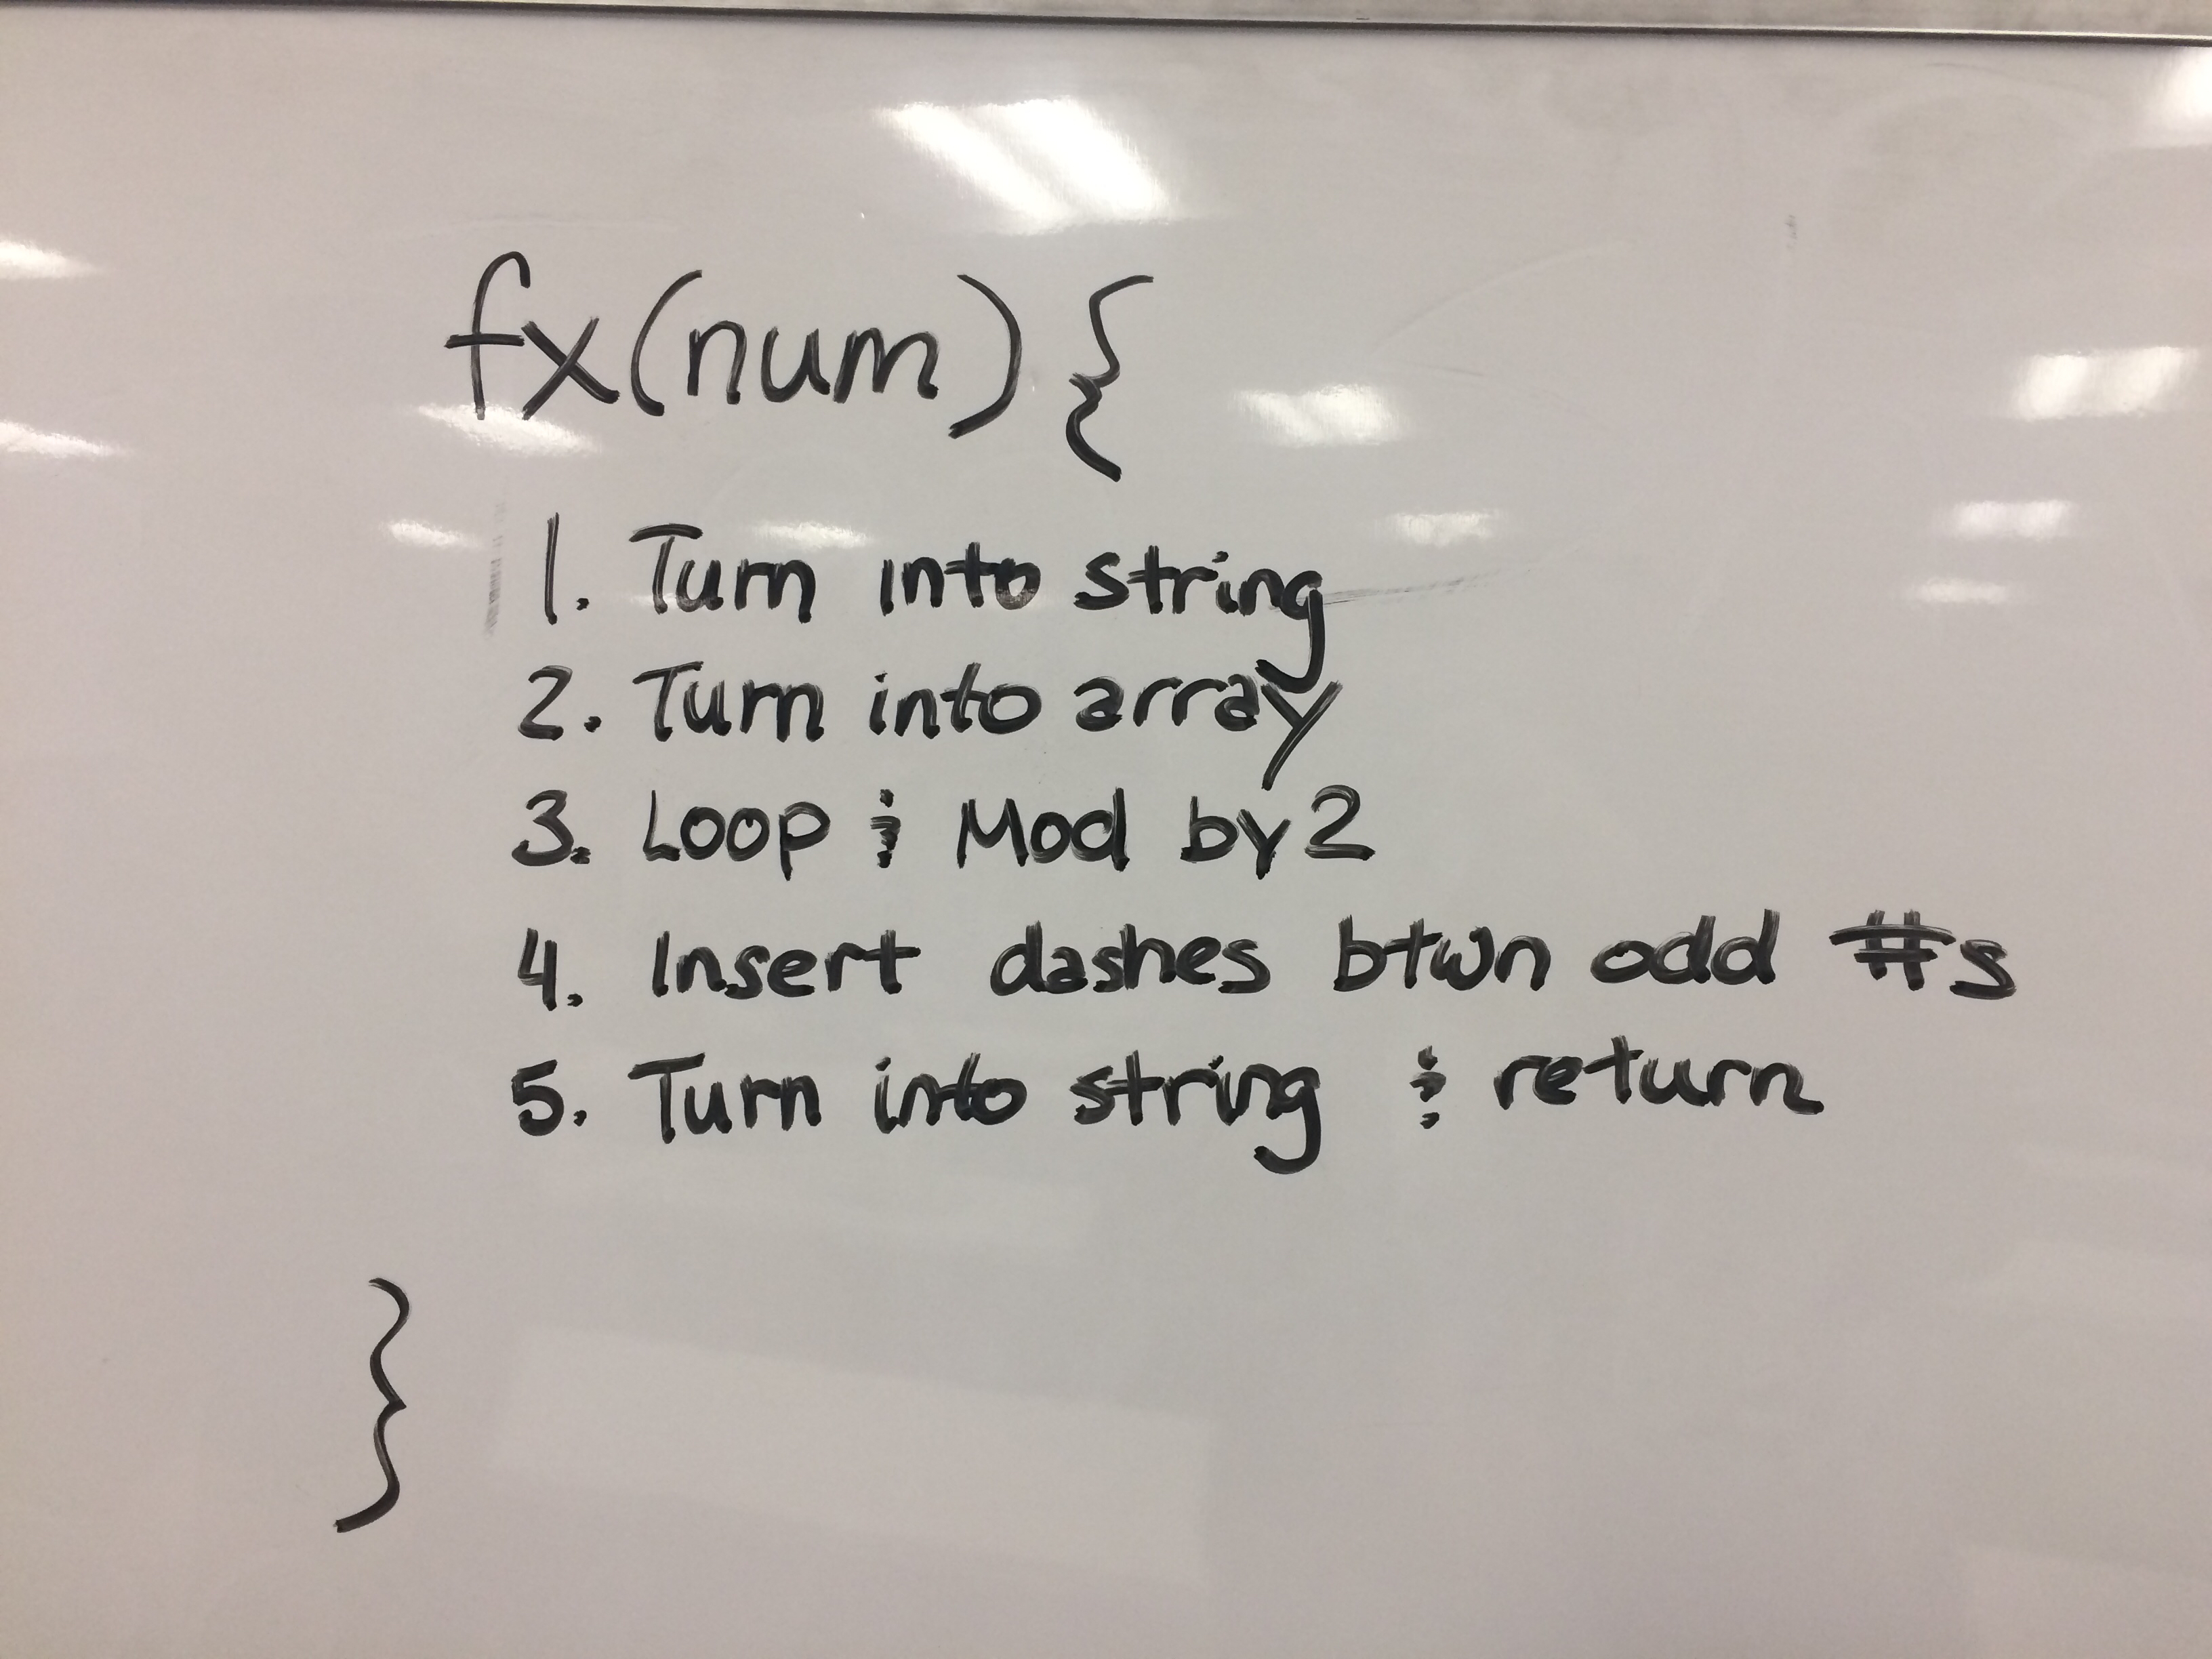 fx(num){
1. Turn into string
2. Turn into array
3. Loop & Mod by 2
4. Insert dashes btwn odd #s
5. Turn into string & return
}